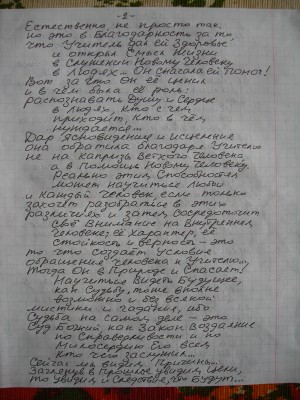 -2-
Естественно не просто так,
но это в Благодарность за то,
что Учитель дал ей Здоровье
и открыл Смысл Жизни
в Служении Новому Человеку
в Людях... Он Спасал ей Помог!
Вот за что Он её ценил
и в чём была её роль:
распознавать Душу и Сердце
в людях, кто с чем
приходит, кто в чём
нуждается...
Дар Ясновидения и исцеления
она обратила благодаря Учителю
не на капризы Ветхого Человека
а в Помощь Новому Человеку.
Реально этим Способностям
может научиться любой
и каждый человек, если только
захочет разобраться в этих
различиях и затем сосредоточит
своё Внимание на Внутреннем
Человеке: её Характер, её
стойкость и верность - это
то что создаёт Условие
обращения Человека к Учителю...
Тогда Он в Природе и Спасает!
Научиться Видеть Будущее,
как Судьбу, тоже вполне
возможно и без всякой
мистики и гадания, ибо
Судьба на самом деле - это
Суд Божий как Закон Воздаяние
по Справедливости и по
Милосердию Его всем
кто чего заслужил...
Сейчас мы видим Причины...
Заглянув в Прошлое увидим Цели,
то увидим и Следствие, что Будут...